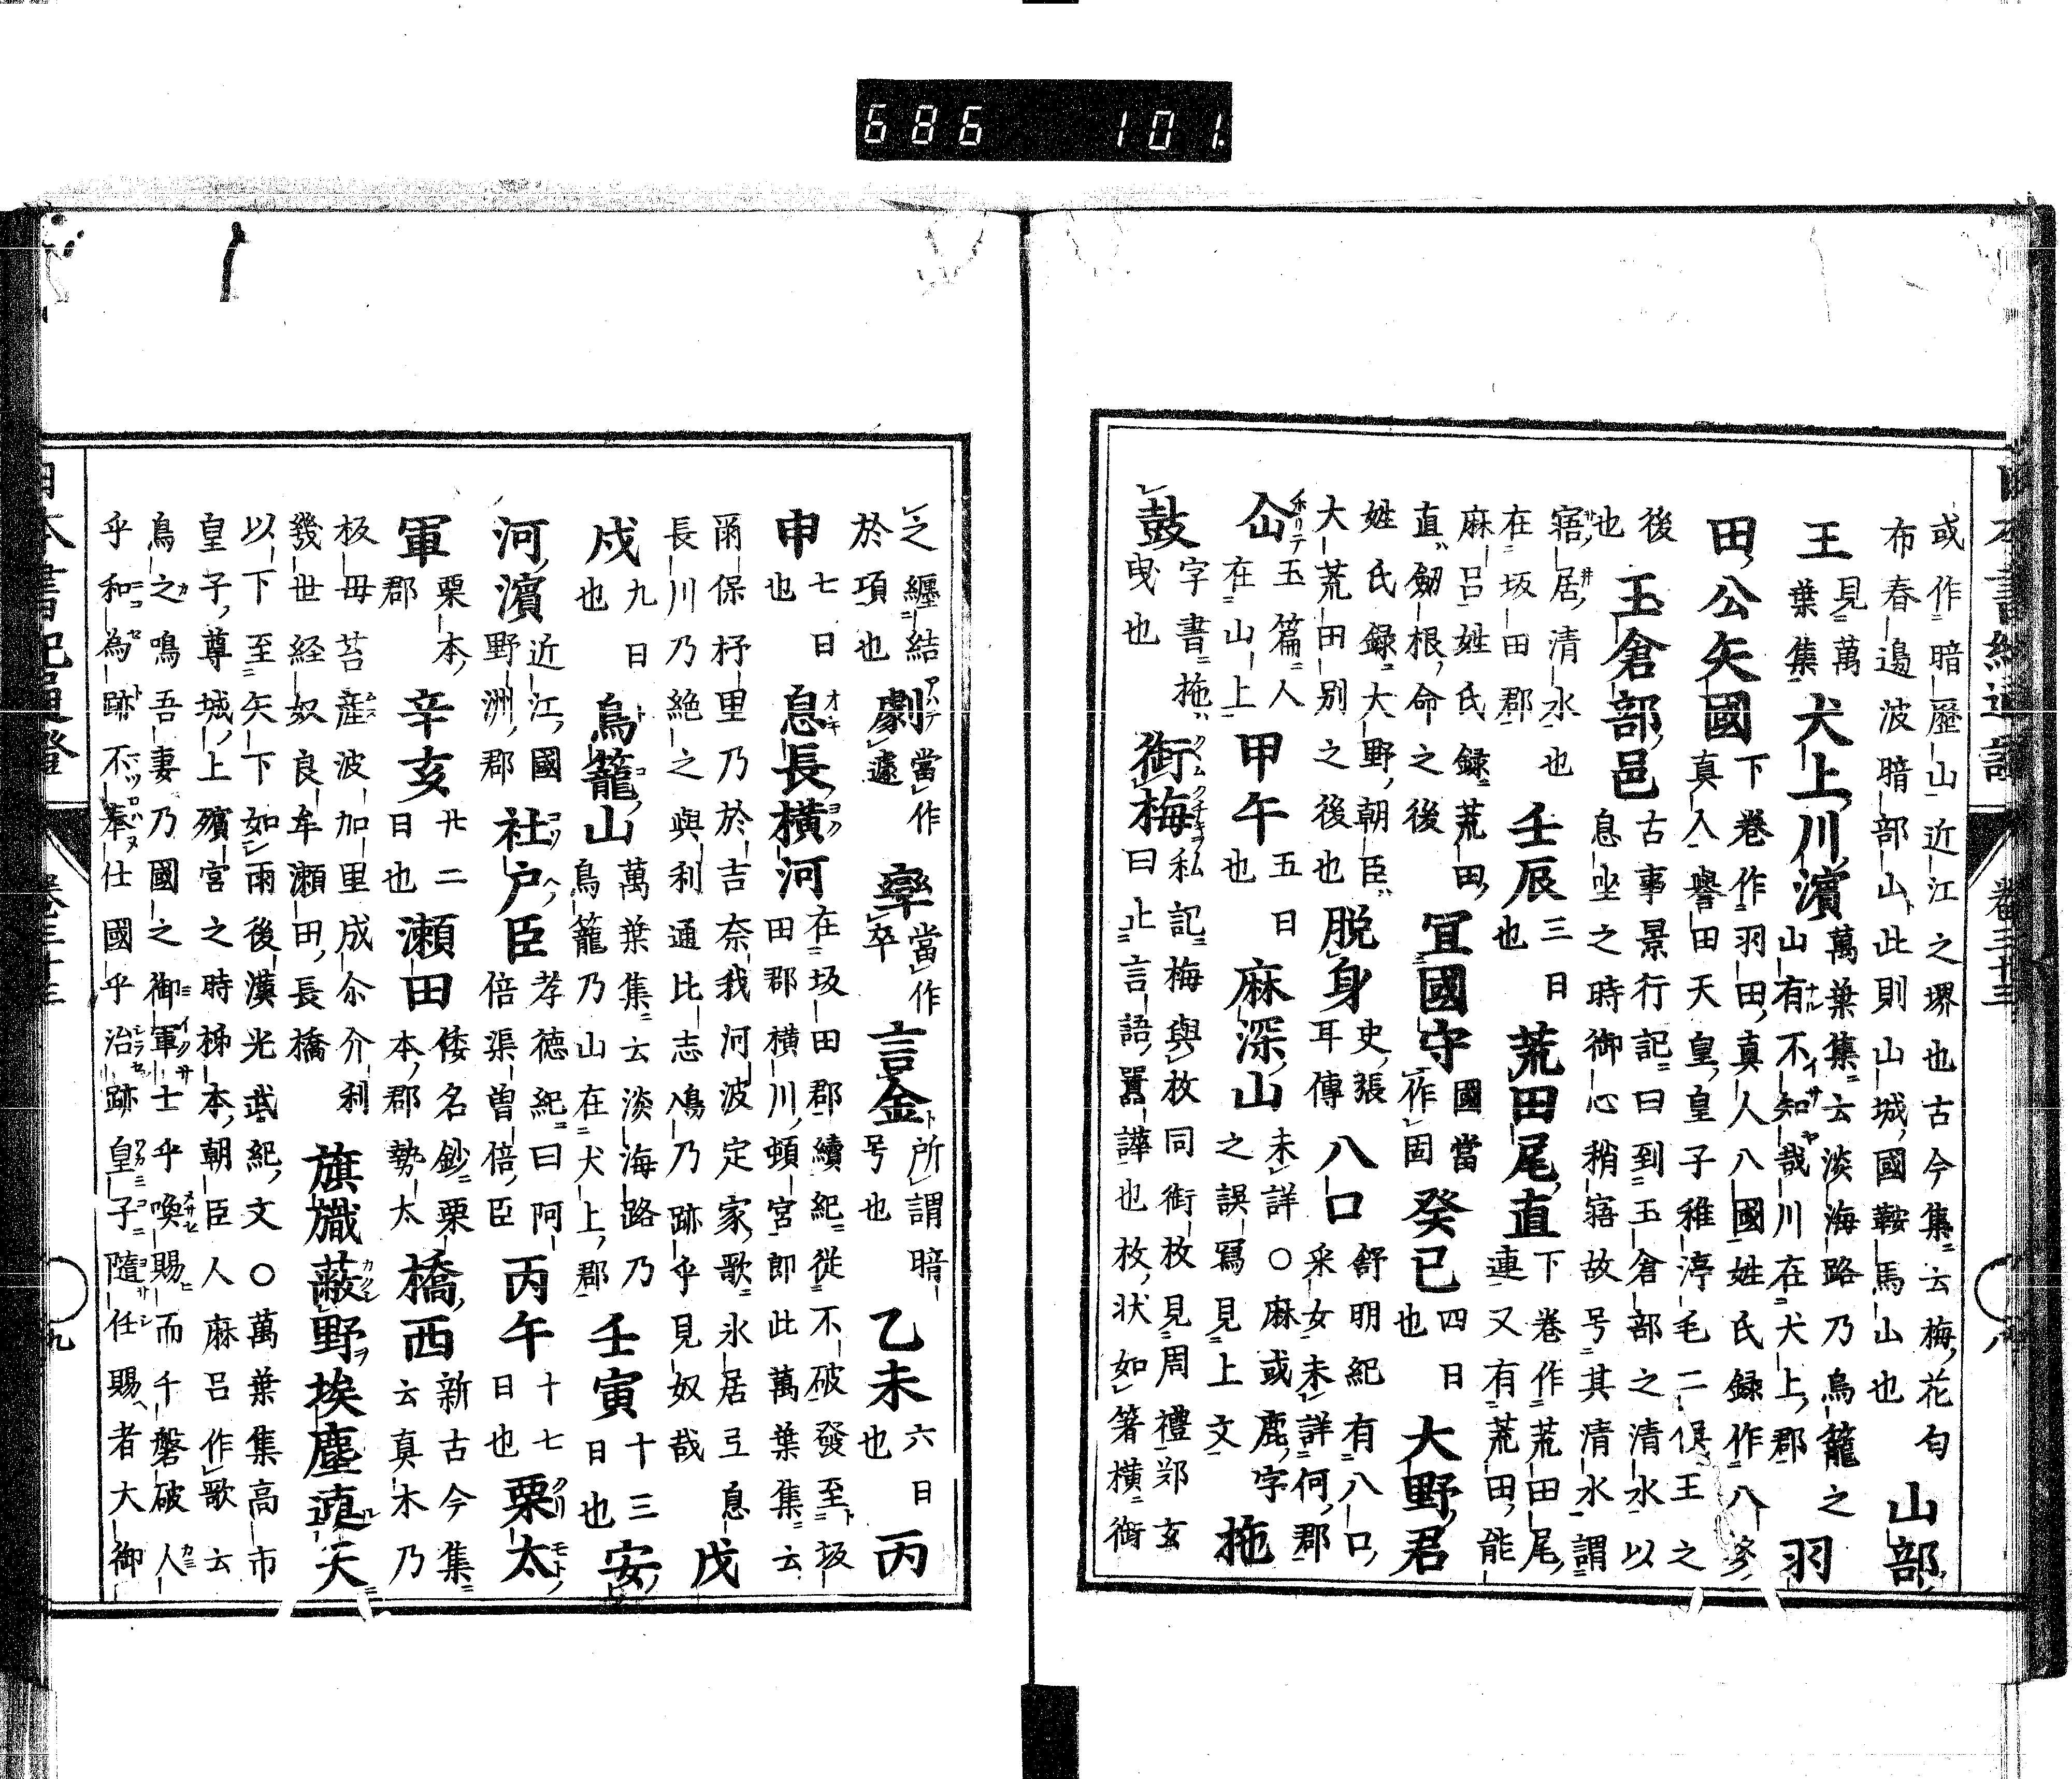 686 101
或作暗歷山近江之堺也古今集云梅花匂
布春邉波暗部山此則山城國鞍馬山也
山部
王
見萬
葉集
犬上川濵
萬葉集云淡海路乃鳥籠之
山有不知哉川在犬上郡
羽
田公矢國
下卷作羽田真人八國姓氏録作八
真人譽田天皇皇子稚渟毛二俣王之
後
也
玉倉部邑
古事景行記曰到玉倉部之清水以
息坐之時御心稍寤故号其清水謂
寤居清水也
在坂田郡
壬辰
三日
也
荒田尾直
下卷作荒田尾
連又有荒田能
麻呂姓氏録荒田
直劔根命之後
冝國守
國當
作固
癸巳
四日
也
大野君
姓氏録大野朝臣
大荒田別之後也
脱身
史張
耳傳
八口
舒明紀有八口
采女未詳何郡
仚
玉篇人
在山上
甲午
五日
也
麻深山
未詳○麻或鹿字
之誤寫見上文
拖
鼓
字書拖
曳也
銜梅
私記梅與枚同銜枚見周禮郊玄
曰止言語囂譁也枚状如箸横銜
之纒結
於項也
劇
當作
遽
𤛓
當作
卒
言金
所謂暗
号也
乙未
六日
也
丙
申
七日
也
息長横河
在坂田郡續紀從不破發至坂
田郡横川頓宮即此萬葉集云
爾保杼里乃於吉奈我河波定家歌氷居弖息
長川乃絶之與利通比志鳰乃跡乎見奴哉
戊
戌
九日
也
鳥籠山
萬葉集云淡海路乃
鳥籠乃山在犬上郡
壬寅
十三
日也
安
河濵
近江國
野洲郡
社戸臣
孝徳紀曰阿
倍渠曽倍臣
丙午
十七
日也
栗太
軍
栗本
郡
辛亥
廿二
日也
瀬田
倭名鈔栗
本郡勢太
橋西
新古今集
云真木乃
板毋苔産波加里成尒介利
幾世経奴良牟瀬田長橋
旗㡨蔽野埃塵連天
以下至矢下如雨後漢光武紀文○萬葉集高市
皇子尊城上殯宮之時柹本朝臣人麻呂作歌云
鳥之鳴吾妻乃國之御軍士乎喚賜而千磐破人
乎和為跡不奉仕國乎治跡皇子隨任賜者大御
日本書紀通證
卷三十三
九